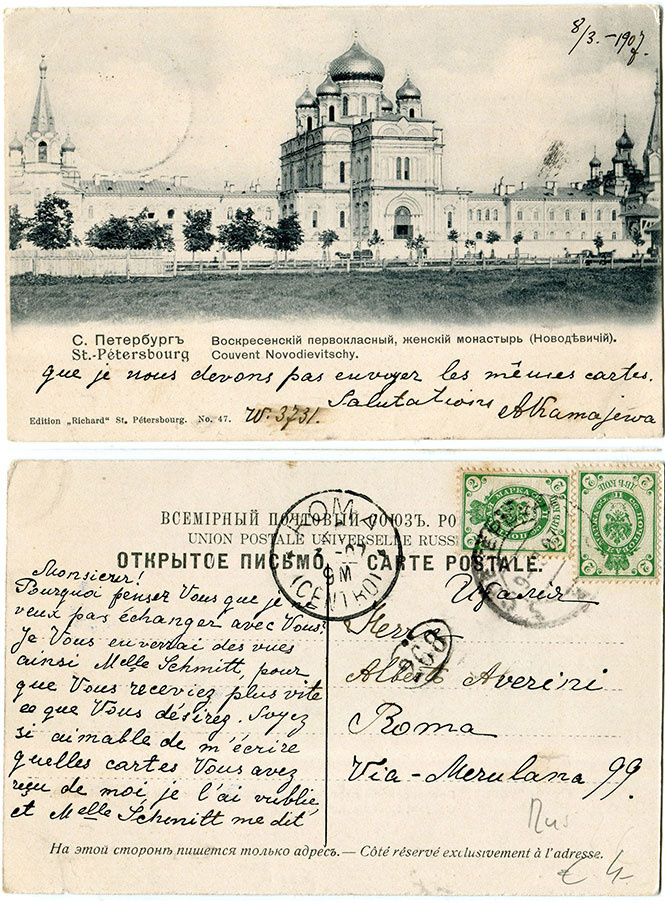 8/3. – 1907.
С. Петербургъ
St.-Pétersbourg
Воскресенскій первокласный, женскій монастырь (Новодѣвичій).
Couvent Novodievitschy.
que je nous devons pas envoyer les mêmes cartes.
Salutations
Edition „Richard" St. Pétersbourg. No. 47.
W. 3731.
AKamajewa
ВСЕМІРНЫЙ ПОЧТОВЫЙ СОЮЗЪ. РО
UNION POSTALE UNIVERSELLE RUSSI
ОТКРЫТОЕ ПИСЬМО. — CARTE POSTALE.
ROMA
(CENTRO)
МАРКА
2
2
2
2
968
Monsieur!
Pourquoi pensez Vous que je ne
veux pas échanger avec Vous?
Je Vous enverrai des vues
ainsi Melle Schmitt, pour
que Vous receviez plus vite
ce que Vous désirez. Soyez
si aimable de m'écrire
quelles cartes Vous avez
reçu de moi, je l'ai oublié,
et Melle Schmitt me dit
Италія
Herr
Alberto Averini
Roma
Via-Merulana 99.
На этой сторонѣ пишется только адресъ. — Côté réservé exclusivement à l'adresse.